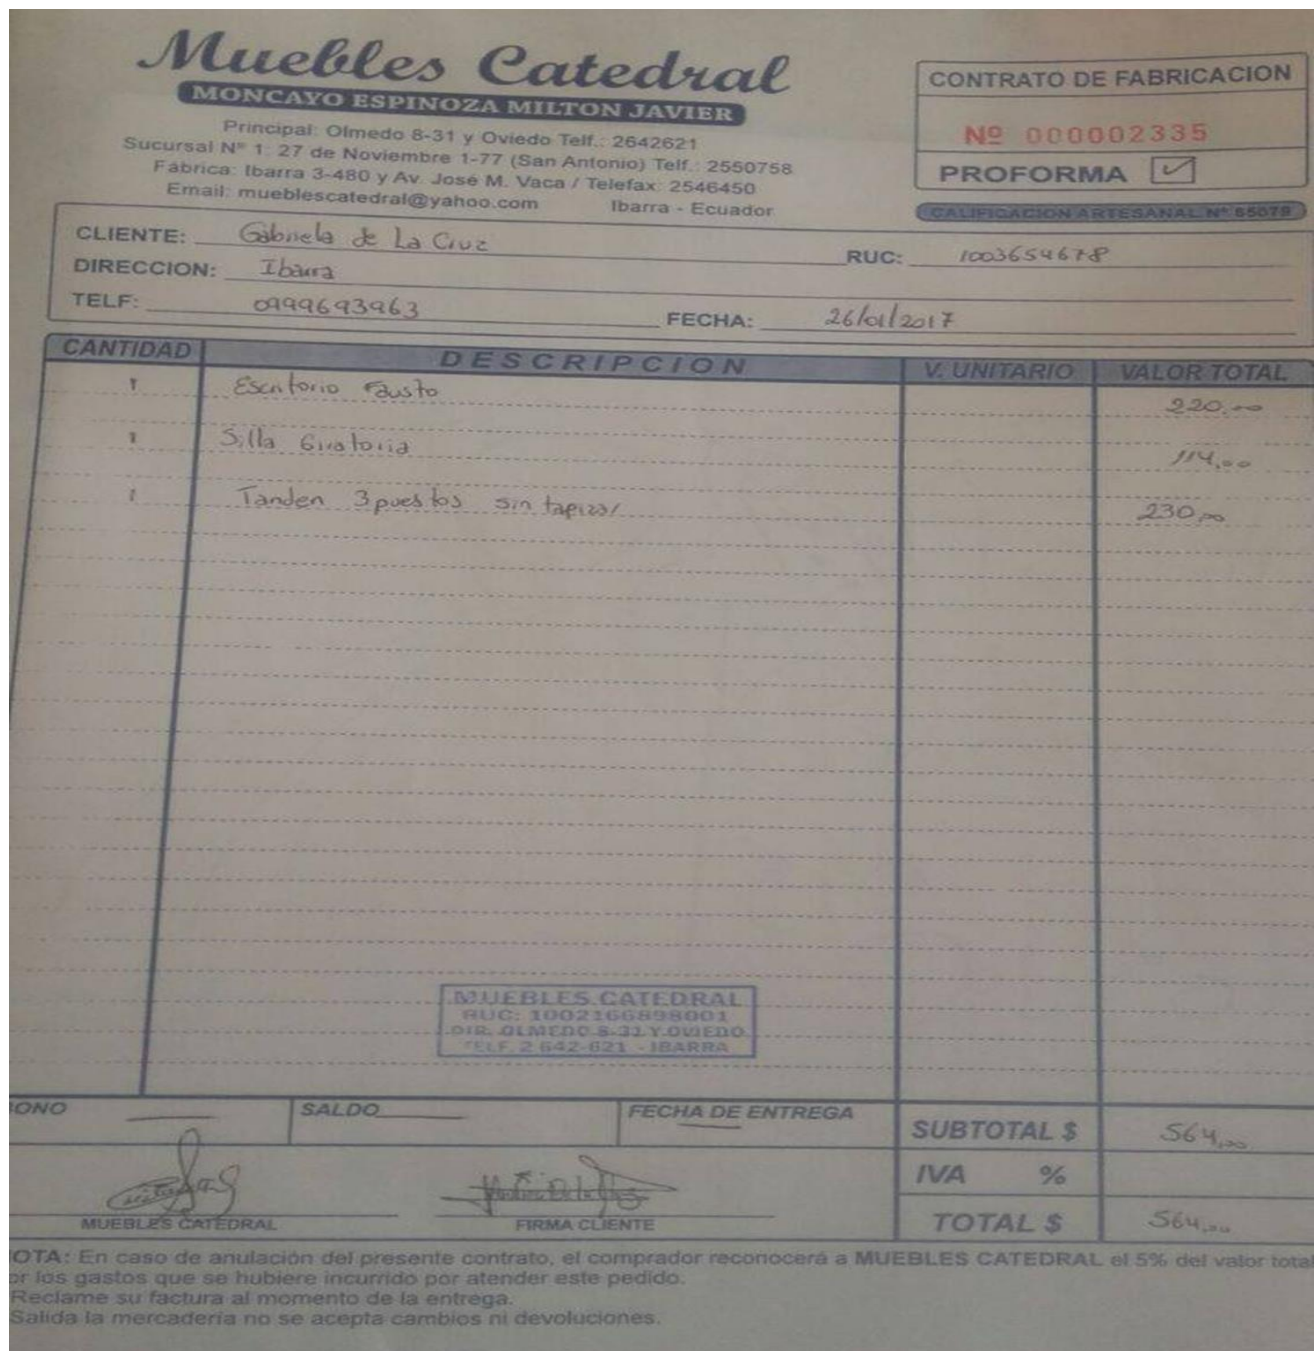 Muebles Catedral
MONCAYO ESPINOZA MILTON JAVIER
Principal: Olmedo 8-31 y Oviedo Telf.: 2642621
Sucursal Nº 1: 27 de Noviembre 1-77 (San Antonio) Telf.: 2550758
Fábrica: Ibarra 3-480 y Av. José M. Vaca / Telefax: 2546450
Email: mueblescatedral@yahoo.com Ibarra - Ecuador
CONTRATO DE FABRICACION
Nº 000002335
PROFORMA
CALIFICACION ARTESANAL Nº 65079
CLIENTE: Gabriela de La Cruz
RUC: 1003654678
DIRECCION: Ibarra
TELF: 0999693963
FECHA: 26/01/2017
CANTIDAD DESCRIPCION V. UNITARIO VALOR TOTAL
1 Escritorio Fausto 220,00
1 Silla Giratoria 114,00
1 Tanden 3 puestos sin tapizar 230,00
MUEBLES CATEDRAL
RUC: 1002166898001
DIR. OLMEDO 8-31 Y OVIEDO
TELF. 2 642-621 - IBARRA
ONO SALDO FECHA DE ENTREGA
SUBTOTAL $ 564,00
IVA %
TOTAL $ 564,00
MUEBLES CATEDRAL FIRMA CLIENTE
OTA: En caso de anulación del presente contrato, el comprador reconocerá a MUEBLES CATEDRAL el 5% del valor total
or los gastos que se hubiere incurrido por atender este pedido.
Reclame su factura al momento de la entrega.
Salida la mercadería no se acepta cambios ni devoluciones.